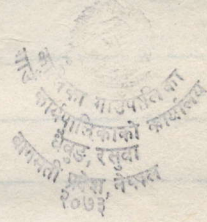 गाउँपालिका
कार्यपालिकाको कार्यालय
धैवुङ, रसुवा
बागमती प्रदेश, नेपाल
२०७३